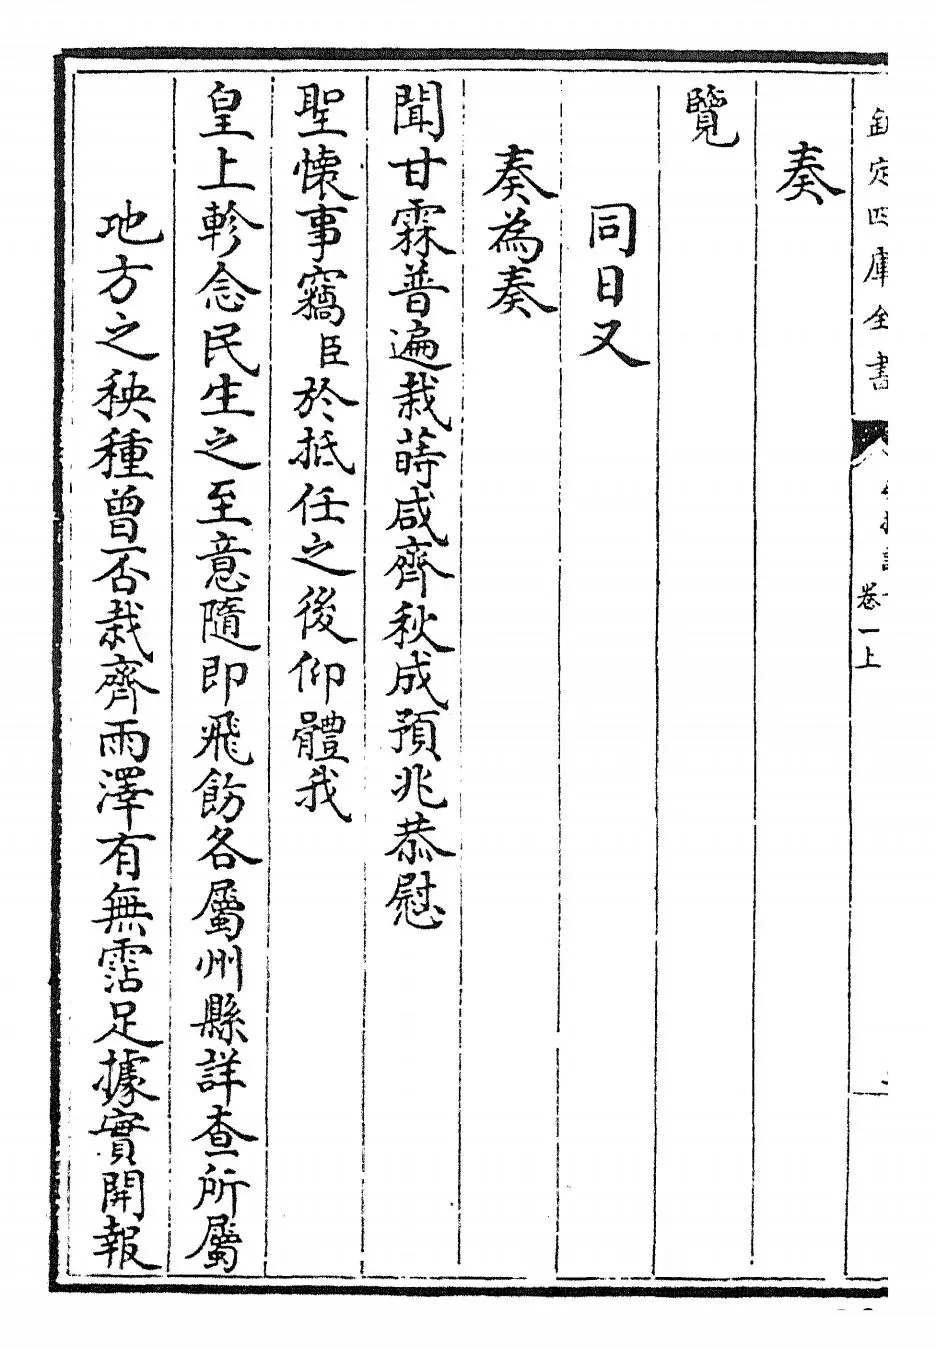 欽定四庫全書
卷一上
奏
覽
同日又
奏為奏
聞甘霖普遍栽蒔咸齊秋成預兆恭慰
聖懷事竊臣於抵任之後仰體我
皇上軫念民生之至意隨即飛飭各屬州縣詳查所屬
地方之秧種曾否栽齊雨澤有無霑足據實開報